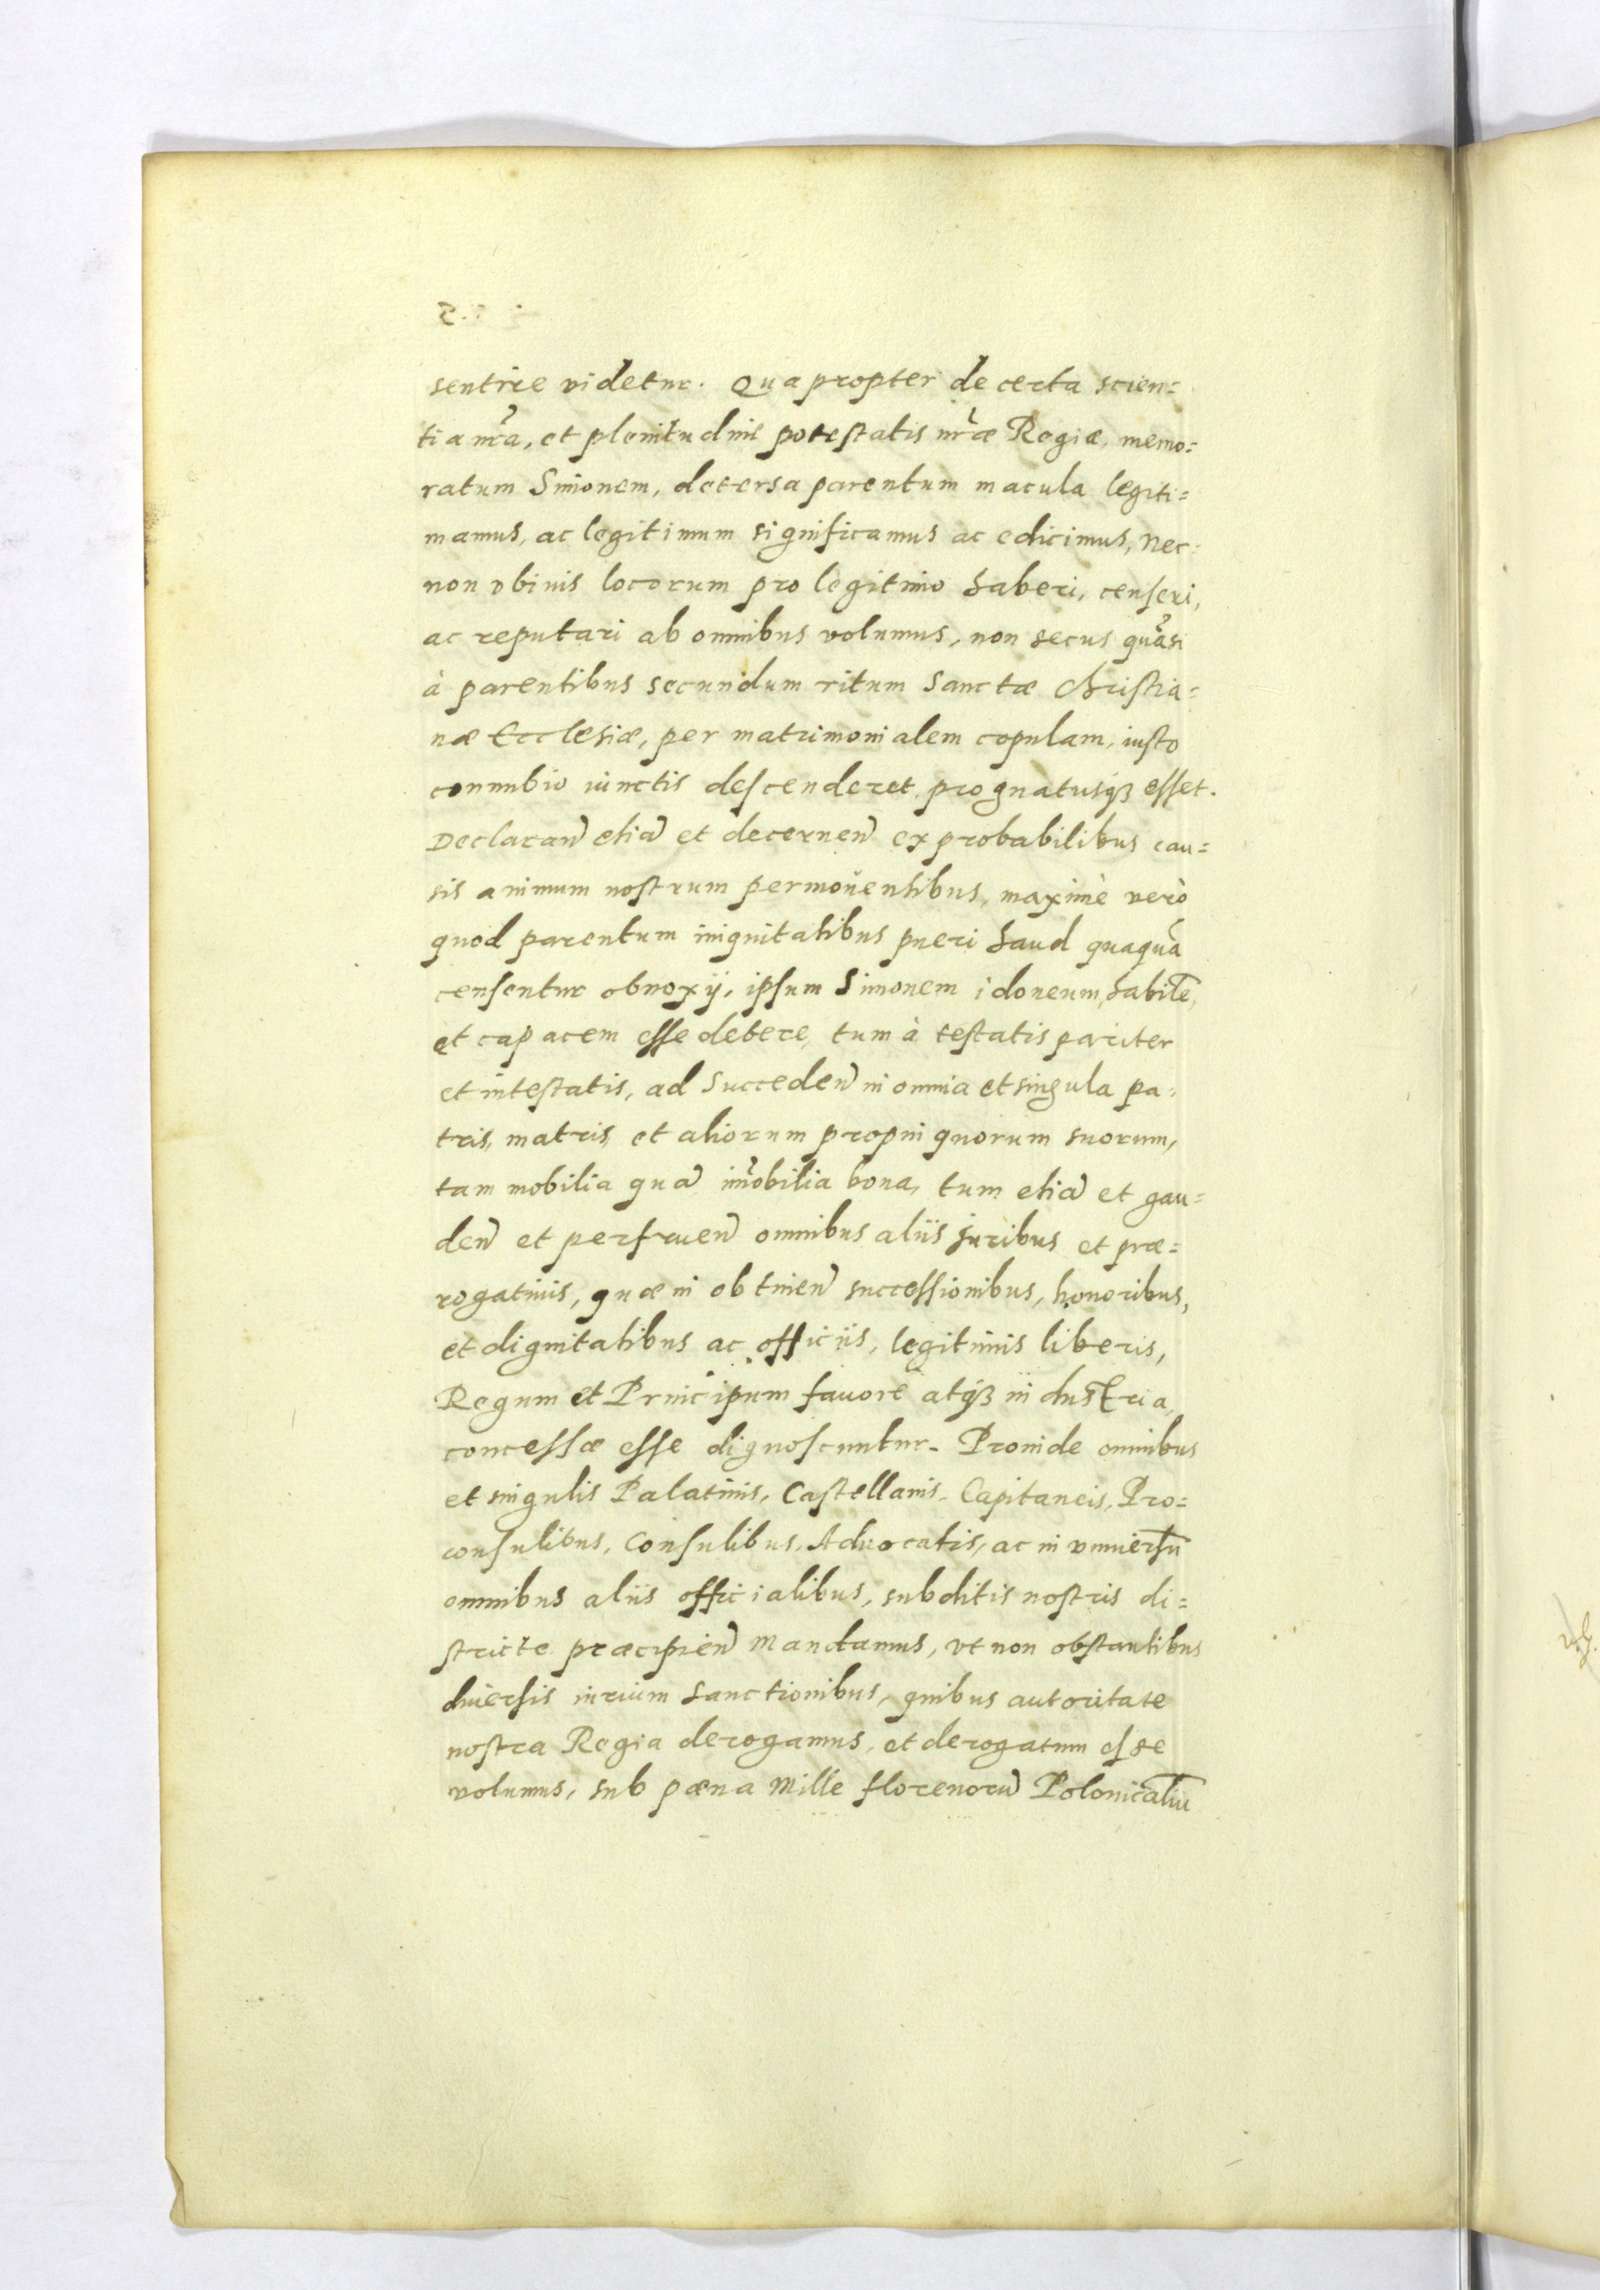 sentire videtur. Quapropter de certa scien=
tia nr̃a, et plenitudine potestatis nr̃æ Regiæ, memo=
ratum Simonem, detersa parentum macula legiti=
mamus, ac legitimum significamus ac edicimus, Nec
non vbiuis locorum pro legitimo haberi, censeri,
ac reputari ab omnibus volumus, non secus quã si
à parentibus secundum ritum Sanctæ Christia=
næ Ecclesiæ, per matrimonialem copulam, iusto
connubio iunctis descenderet, prognatusqȝ esset.
Declaran̄ etiā et decernen̄ ex probabilibus cau=
sis animum nostrum permouentibus, maximè verò
quod parentum iniquitatibus pueri haud quaquã
censentur obnoxÿ, ipsum Simonem idoneum, habilē,
et capacem esse debere, tum à testatis pariter
et intestatis, ad Succeden̄ in omnia et singula pa=
tris, matris, et aliorum propinquorum suorum,
tam mobilia quā im̃obilia bona, tum etiā et gau=
den̄ et perfruen̄ omnibus aliis juribus et præ=
rogatiuis, quæ in obtinen̄ successionibus, honoribus,
et dignitatibus ac officiis, legitimis liberis,
Regum et Principum fauore atqȝ industria,
concessæ esse dignoscuntur. Proinde omnibus
et singulis Palatinis, Castellanis, Capitaneis, Pro=
consulibus, Consulibus, Aduocatis, ac in vniuersū
omnibus aliis officialibus, subditis nostris di=
stricte præcipien̄ Mandamus, vt non obstantibus
diuersis iurium sanctionibus, quibus autoritate
nostra Regia derogamus, et derogatum esse
volumus, sub pœna Mille florenorū Polonicaliū